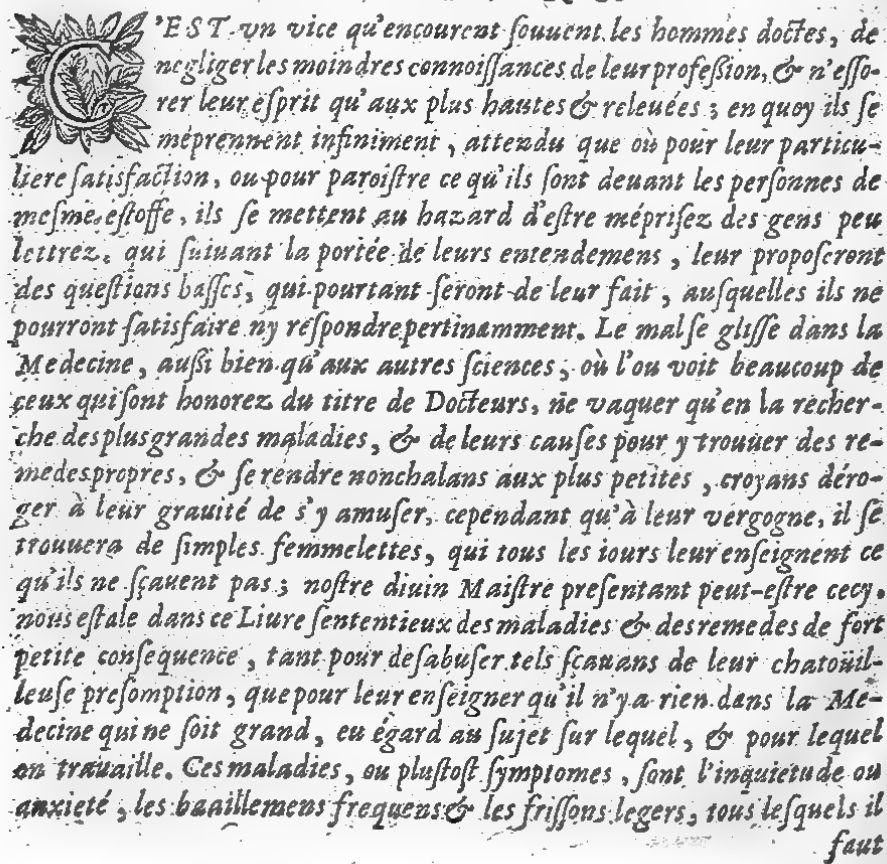 C'EST vn vice qu'encourent ſouuent les hommes doctes, de
negliger les moindres connoiſſances de leur profeſſion, & n'eſſo-
rer leur eſprit qu'aux plus hautes & releuées ; en quoy ils ſe
méprennent infiniment, attendu que où pour leur particu-
liere ſatisfaction, ou pour paroiſtre ce qu'ils ſont deuant les perſonnes de
meſme eſtoffe, ils ſe mettent au hazard d'eſtre mépriſez des gens peu
lettrez, qui ſuiuant la portée de leurs entendemens, leur propoſeront
des queſtions baſſes, qui pourtant ſeront de leur fait, auſquelles ils ne
pourront ſatisfaire ny reſpondre pertinamment. Le mal ſe gliſſe dans la
Medecine, auſſi bien qu'aux autres ſciences, où l'ou voit beaucoup de
ceux qui ſont honorez du titre de Docteurs, ne vaquer qu'en la recher-
che des plus grandes maladies, & de leurs cauſes pour y trouuer des re-
medes propres, & ſe rendre nonchalans aux plus petites, croyans déro-
ger à leur grauité de s'y amuſer, cependant qu'à leur vergogne, il ſe
trouuera de ſimples femmelettes, qui tous les iours leur enſeignent ce
qu'ils ne ſçauent pas ; noſtre diuin Maiſtre preſentant peut-eſtre cecy,
nous eſtale dans ce Liure ſententieux des maladies & des remedes de fort
petite conſequence, tant pour deſabuſer tels ſçauans de leur chatoüil-
leuſe preſomption, que pour leur enſeigner qu'il n'y a rien dans la Me-
decine qui ne ſoit grand, eu égard au ſujet ſur lequel, & pour lequel
on trauaille. Ces maladies, ou pluſtoſt ſymptomes, ſont l'inquietude ou
anxieté, les baaillemens frequens & les friſſons legers, tous leſquels il
faut